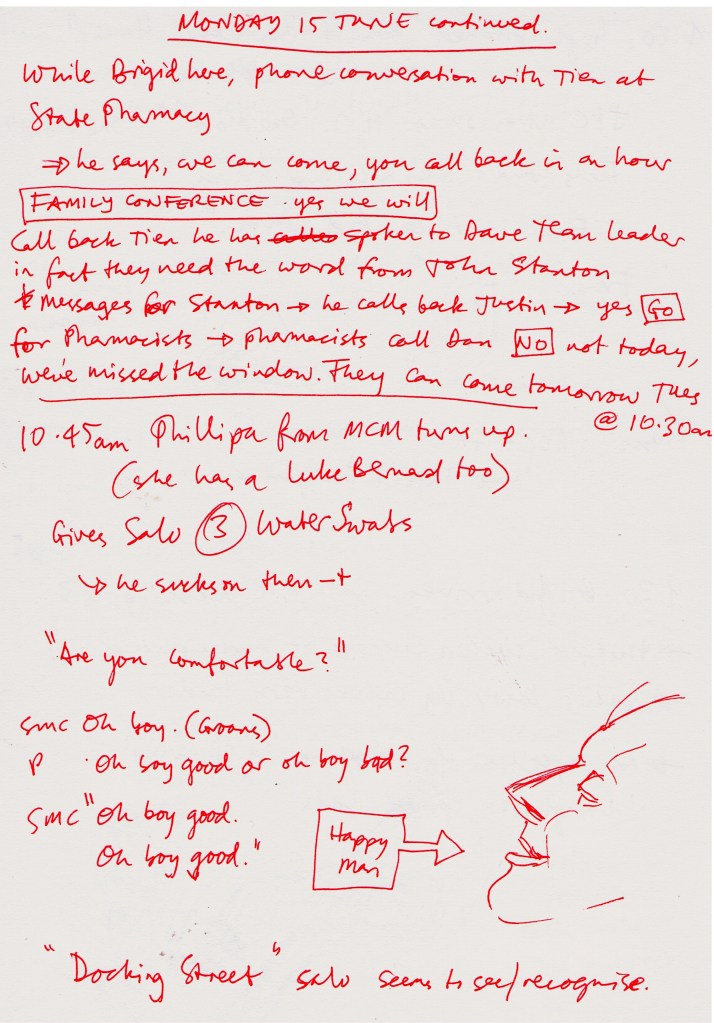 MONDAY 15 JUNE continued.
While Brigid here, phone conversation with Tien at
State Pharmacy
⇒ he says, we can come, you call back in an hour
FAMILY CONFERENCE · yes we will
Call back Tien he has spoken to Dave Team leader
in fact they need the word from John Stanton
messages for Stanton → he calls back Justin → yes GO
for Pharmacists → pharmacists call Dan NO not today,
we've missed the window. They can come tomorrow Tues
@ 10.30am
10.45am Phillipa from MCM turns up.
(she has a Luke Bernard too)
Gives Salv 3 Water Swabs
↳ he sucks on them
"Are you comfortable?"
SMC Oh boy. (Groans)
P · Oh boy good or oh boy bad?
SMC "Oh boy good.
Oh boy good."
Happy
Man
"Docking Street" Salv seems to see/recognise.